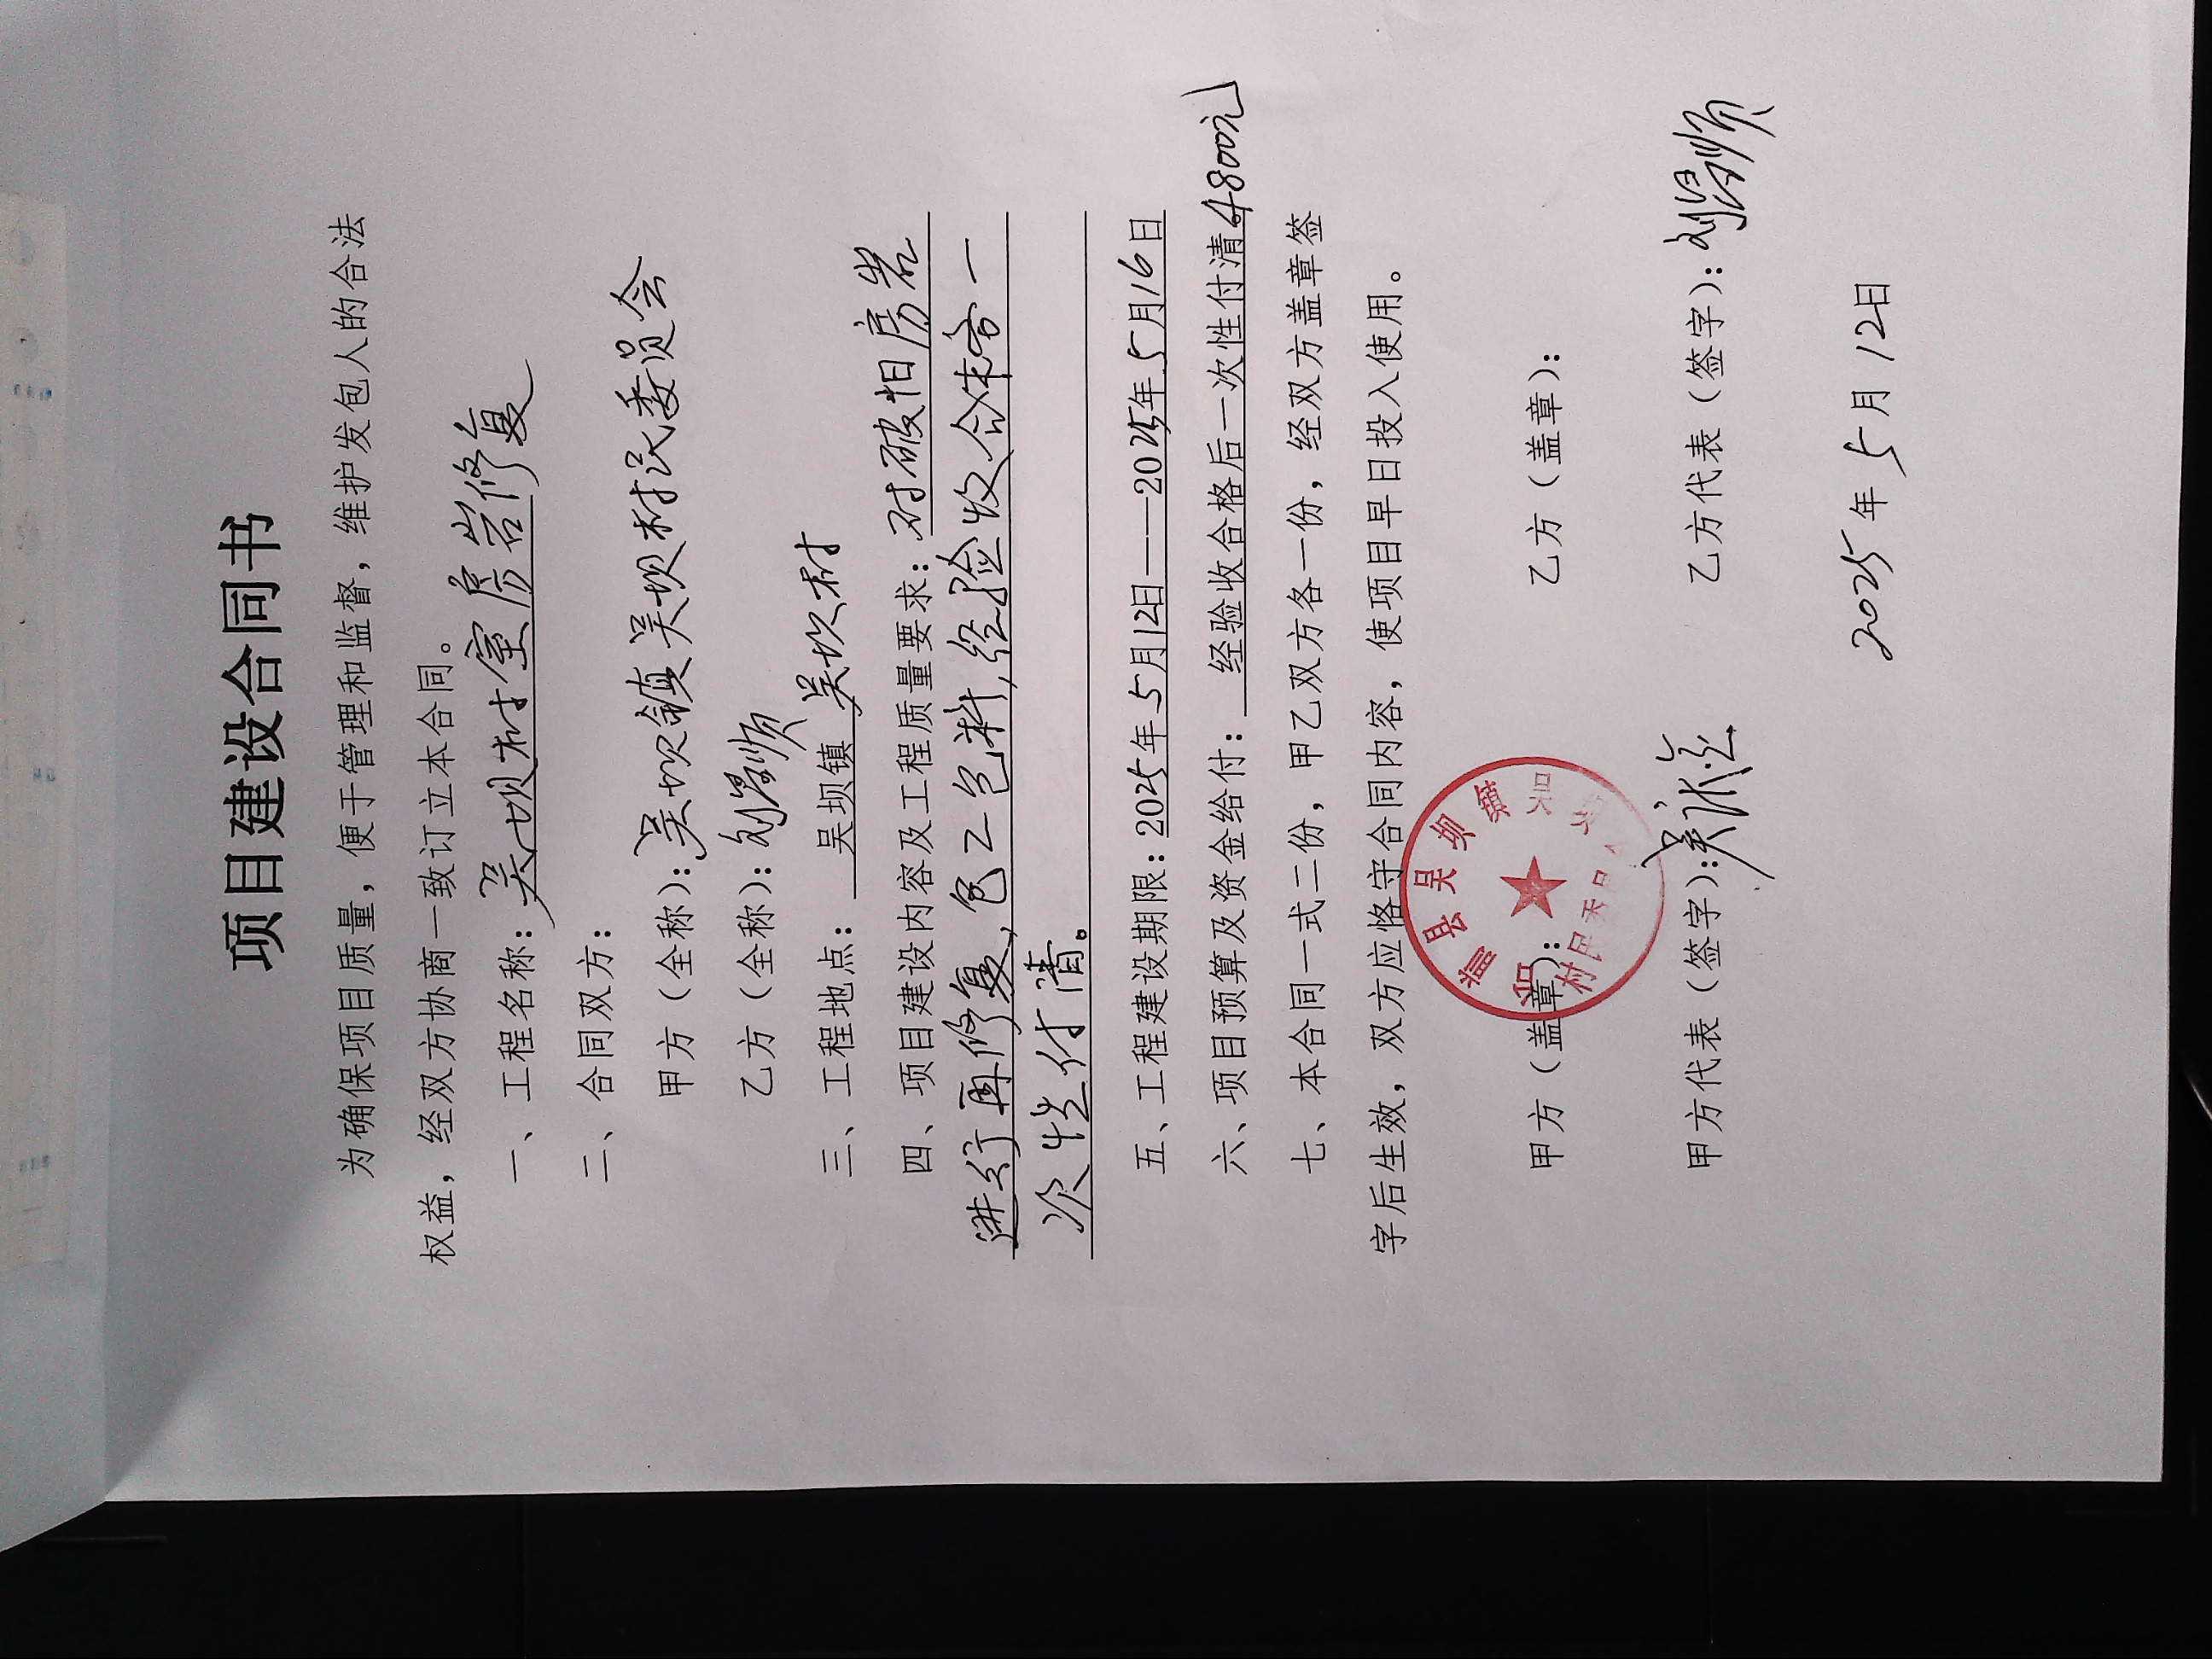 项目建设合同书
为确保项目质量，便于管理和监督，维护发包人的合法
权益，经双方协商一致订立本合同。
一、工程名称：吴坝村室房岩修复
二、合同双方：
甲方（全称）：吴坝镇吴坝村民委员会
乙方（全称）：刘
三、工程地点：吴坝镇吴坎村
四、项目建设内容及工程质量要求：对破旧房岩
进行再修复，包工包料，经验收合格一
次性付清。
五、工程建设期限：2025年5月12日——2025年5月16日
六、项目预算及资金给付：经验收合格后一次性付清4800元
七、本合同一式二份，甲乙双方各一份，经双方盖章签
字后生效，双方应恪守合同内容，使项目早日投入使用。
甲方（盖章）： 乙方（盖章）：
县吴坝镇吴
村民委员
甲方代表（签字）：吴 乙方代表（签字）：刘
2025年5月12日